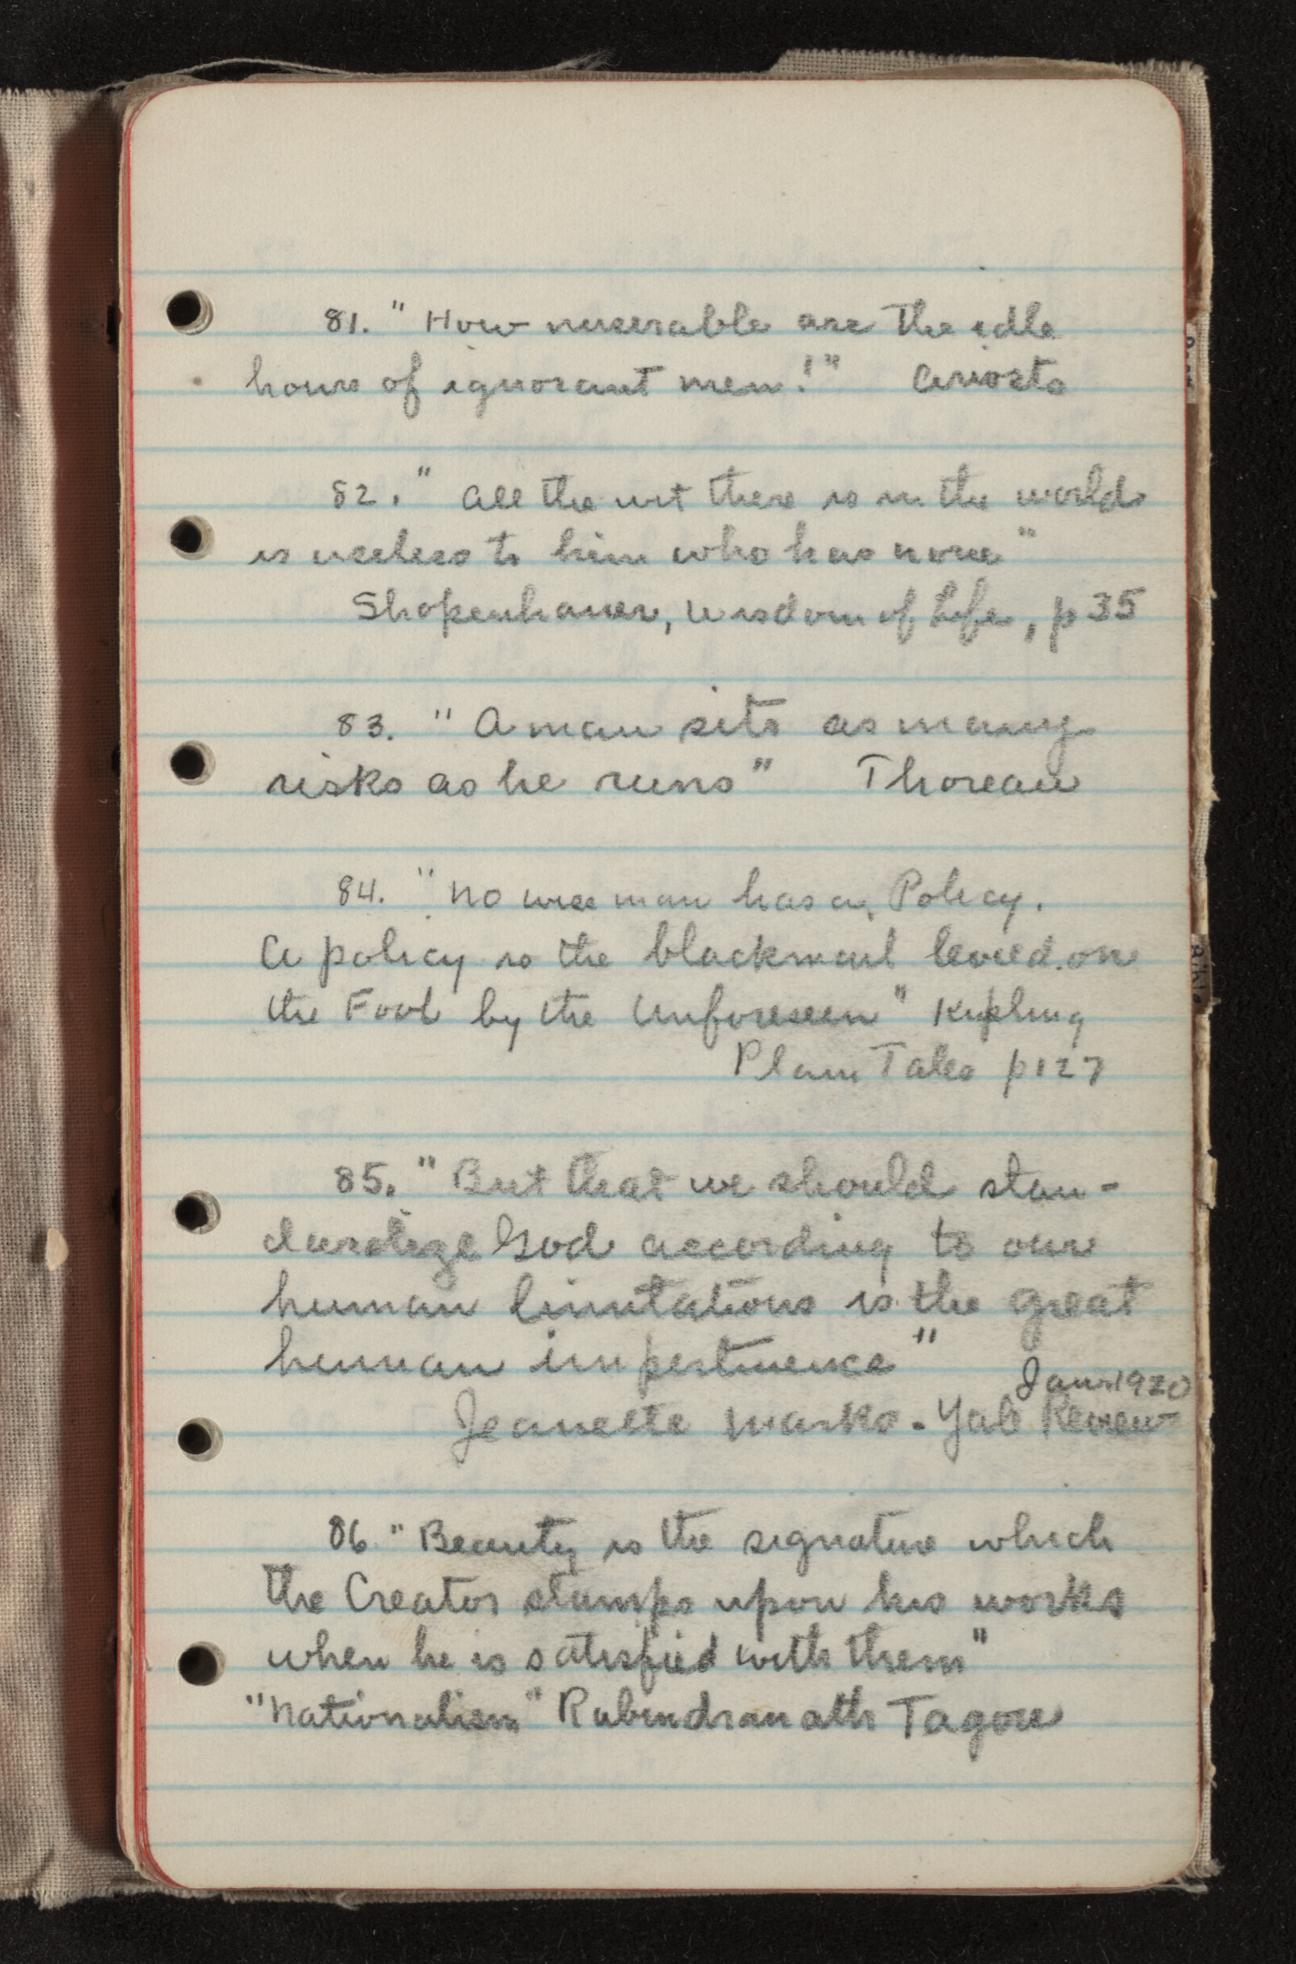 81. "How miserable are the idle
hours of ignorant men!" Ariosto
82. "All the wit there is in the world
is useless to him who has none"
Shopenhauer, Wisdom of Life, p 35
83. "A man sits as many
risks as he runs" Thoreau
84. "No wise man has a Policy.
A policy is the blackmail levied on
the Fool by the Unforeseen" Kipling
Plain Tales p127
85. "But that we should stan-
dardize God according to our
human limitations is the great
human impertinence"
Jan. 1920
Jeanette Marks - Yale Review
86 "Beauty is the signature which
the Creator stamps upon his works
when he is satisfied with them"
"Nationalism" Rabindranath Tagore